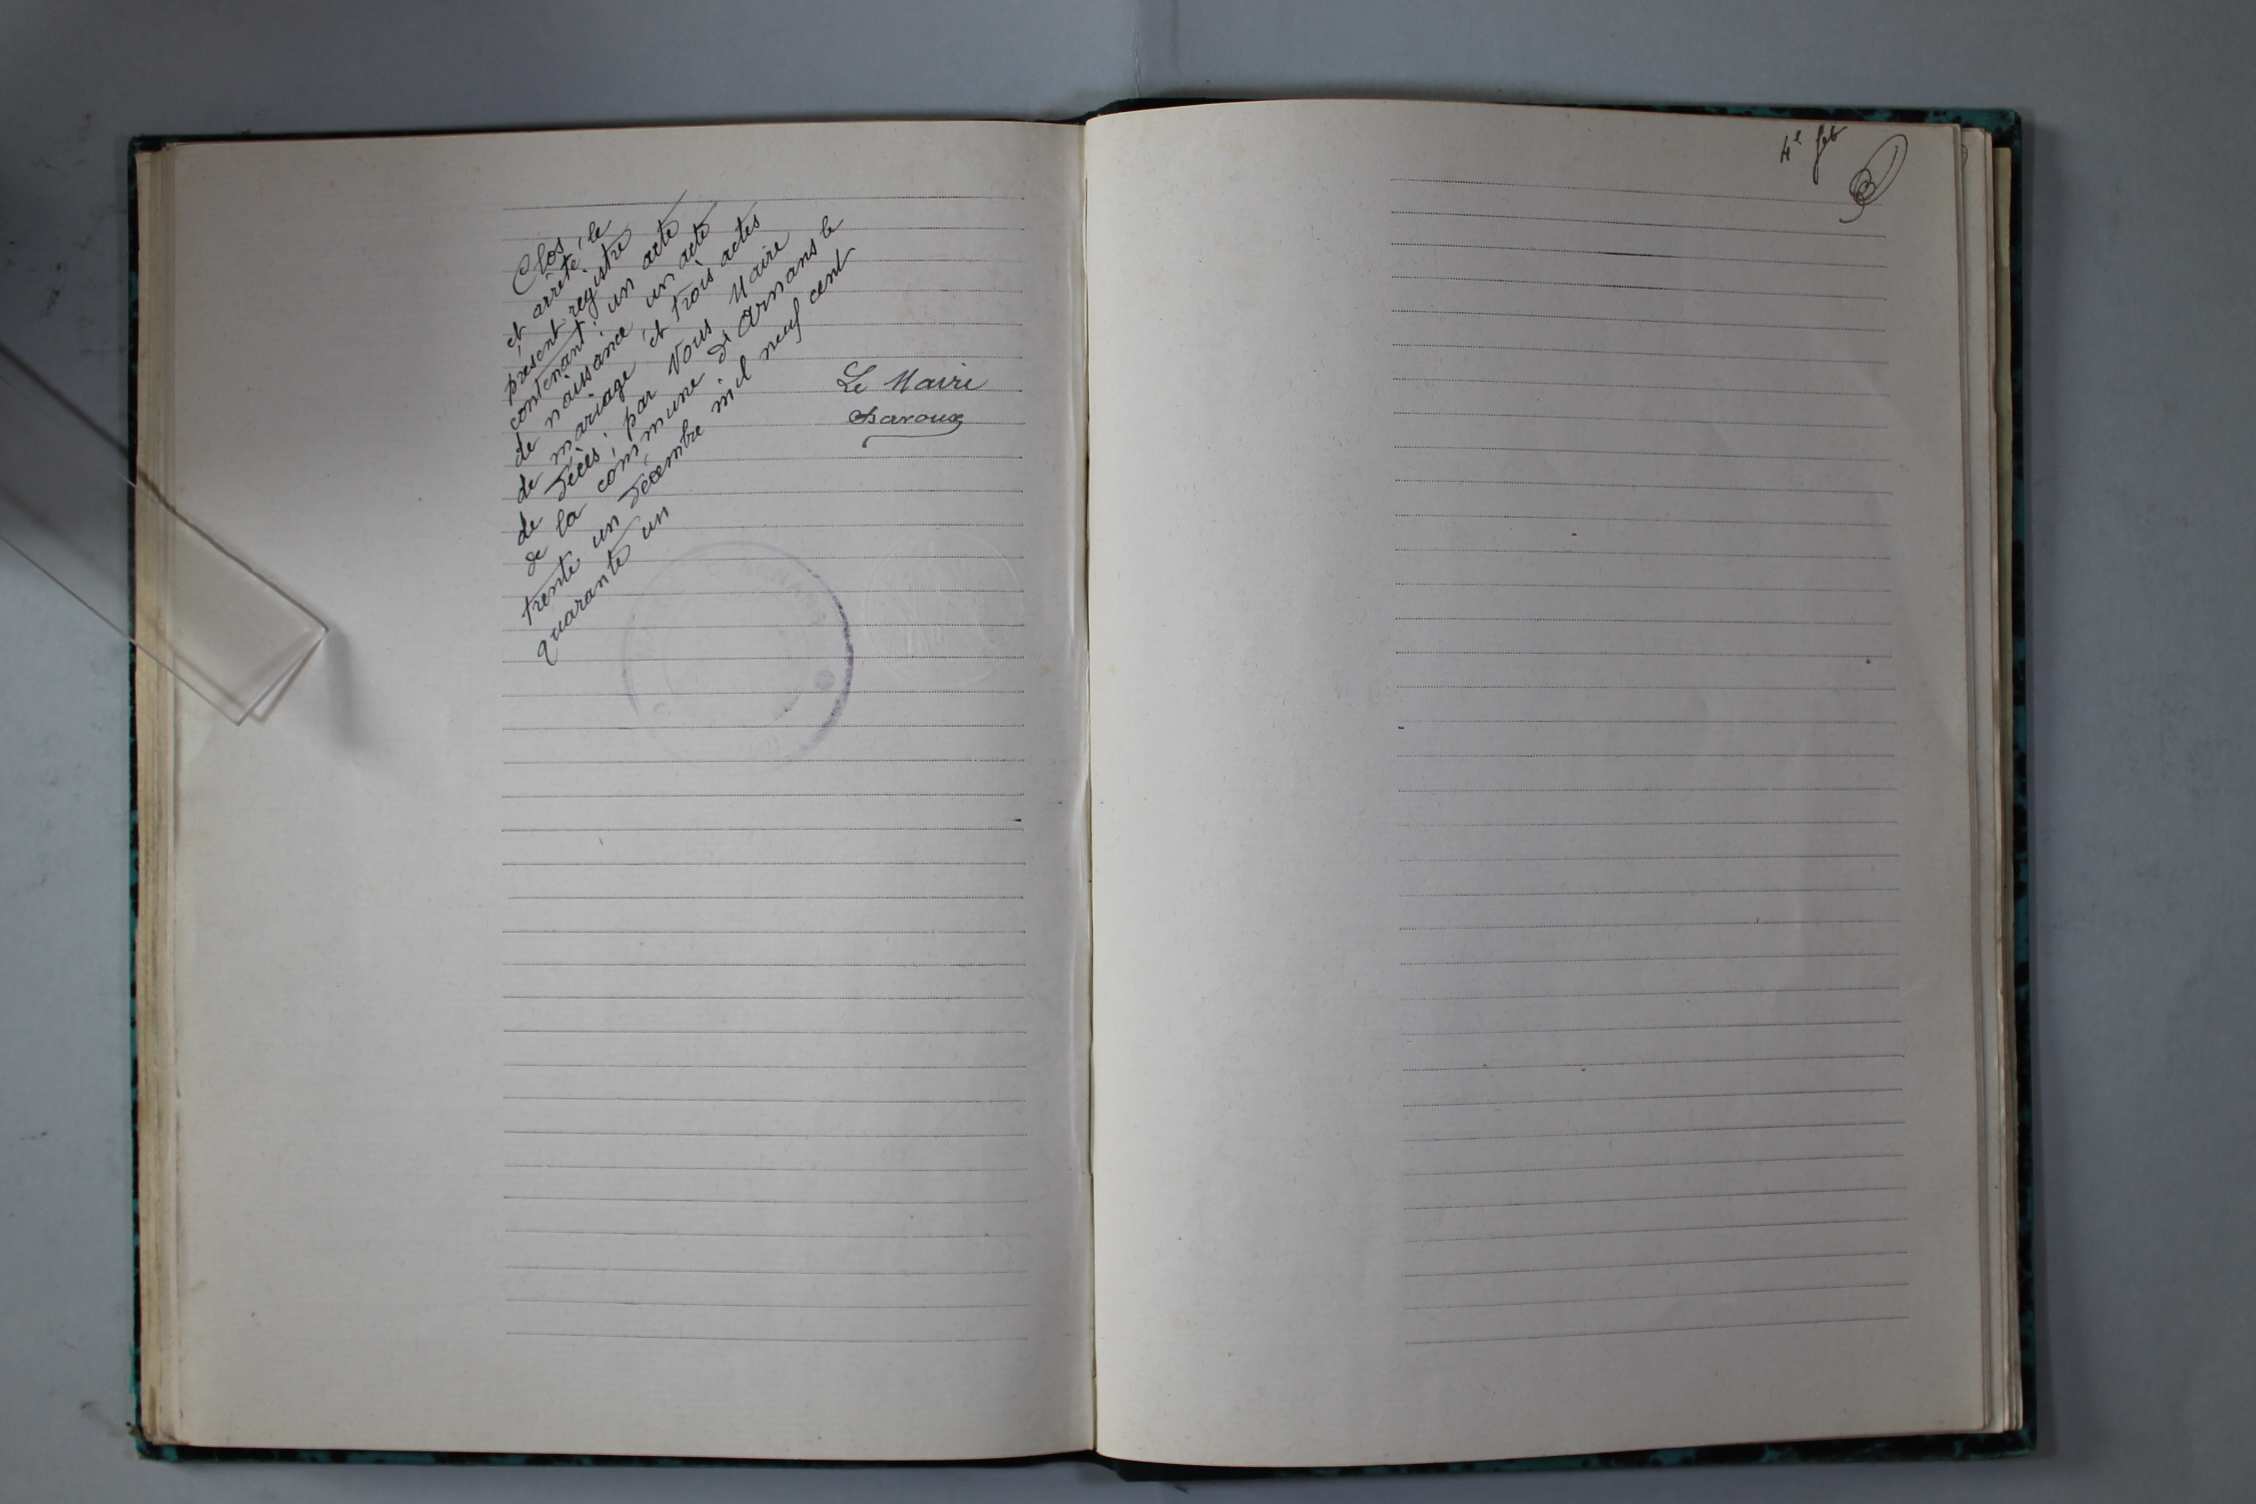 Clos, le
et arrêté,
présent registre
contenant, un acte
de naissance, un acte
de mariage et trois actes
de décès, par Nous Maire
de la commune d'Arnans le
trente un décembre mil neuf cent
quarante un
Le Maire
4e fet